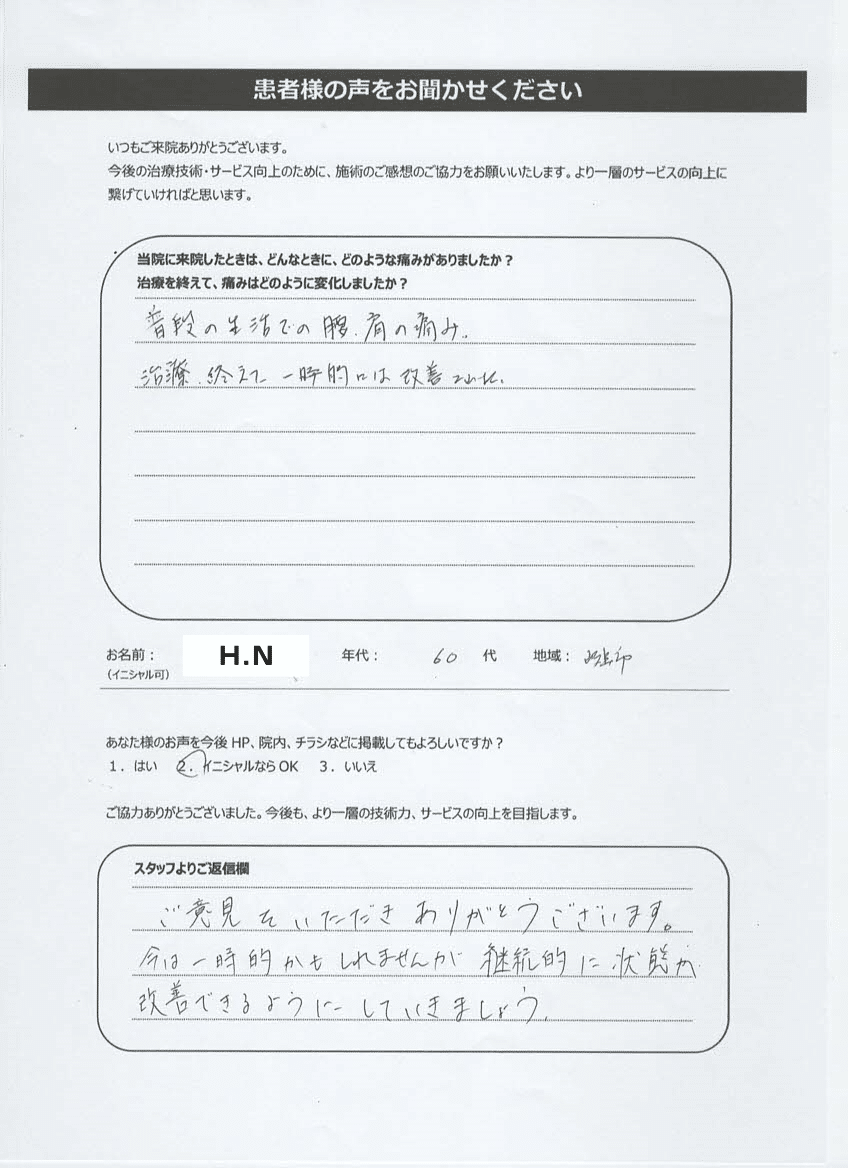 患者様の声をお聞かせください
いつもご来院ありがとうございます。
今後の治療技術・サービス向上のために、施術のご感想のご協力をお願いいたします。より一層のサービスの向上に
繋げていければと思います。
当院に来院したときは、どんなときに、どのような痛みがありましたか？
治療を終えて、痛みはどのように変化しましたか？
普段の生活での腰、肩の痛み。
治療、終えて 一時的には改善された。
お名前： H.N 年代： 60 代 地域：
（イニシャル可）
あなた様のお声を今後 HP、院内、チラシなどに掲載してもよろしいですか？
１．はい ２．イニシャルなら OK ３．いいえ
ご協力ありがとうございました。今後も、より一層の技術力、サービスの向上を目指します。
スタッフよりご返信欄
ご意見をいただきありがとうございます。
今は一時的かもしれませんが 継続的に状態が
改善できるようにしていきましょう。